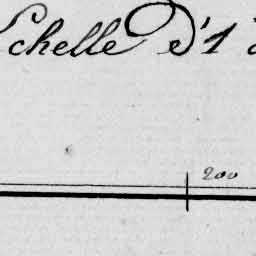 Echelle d'1 à
200